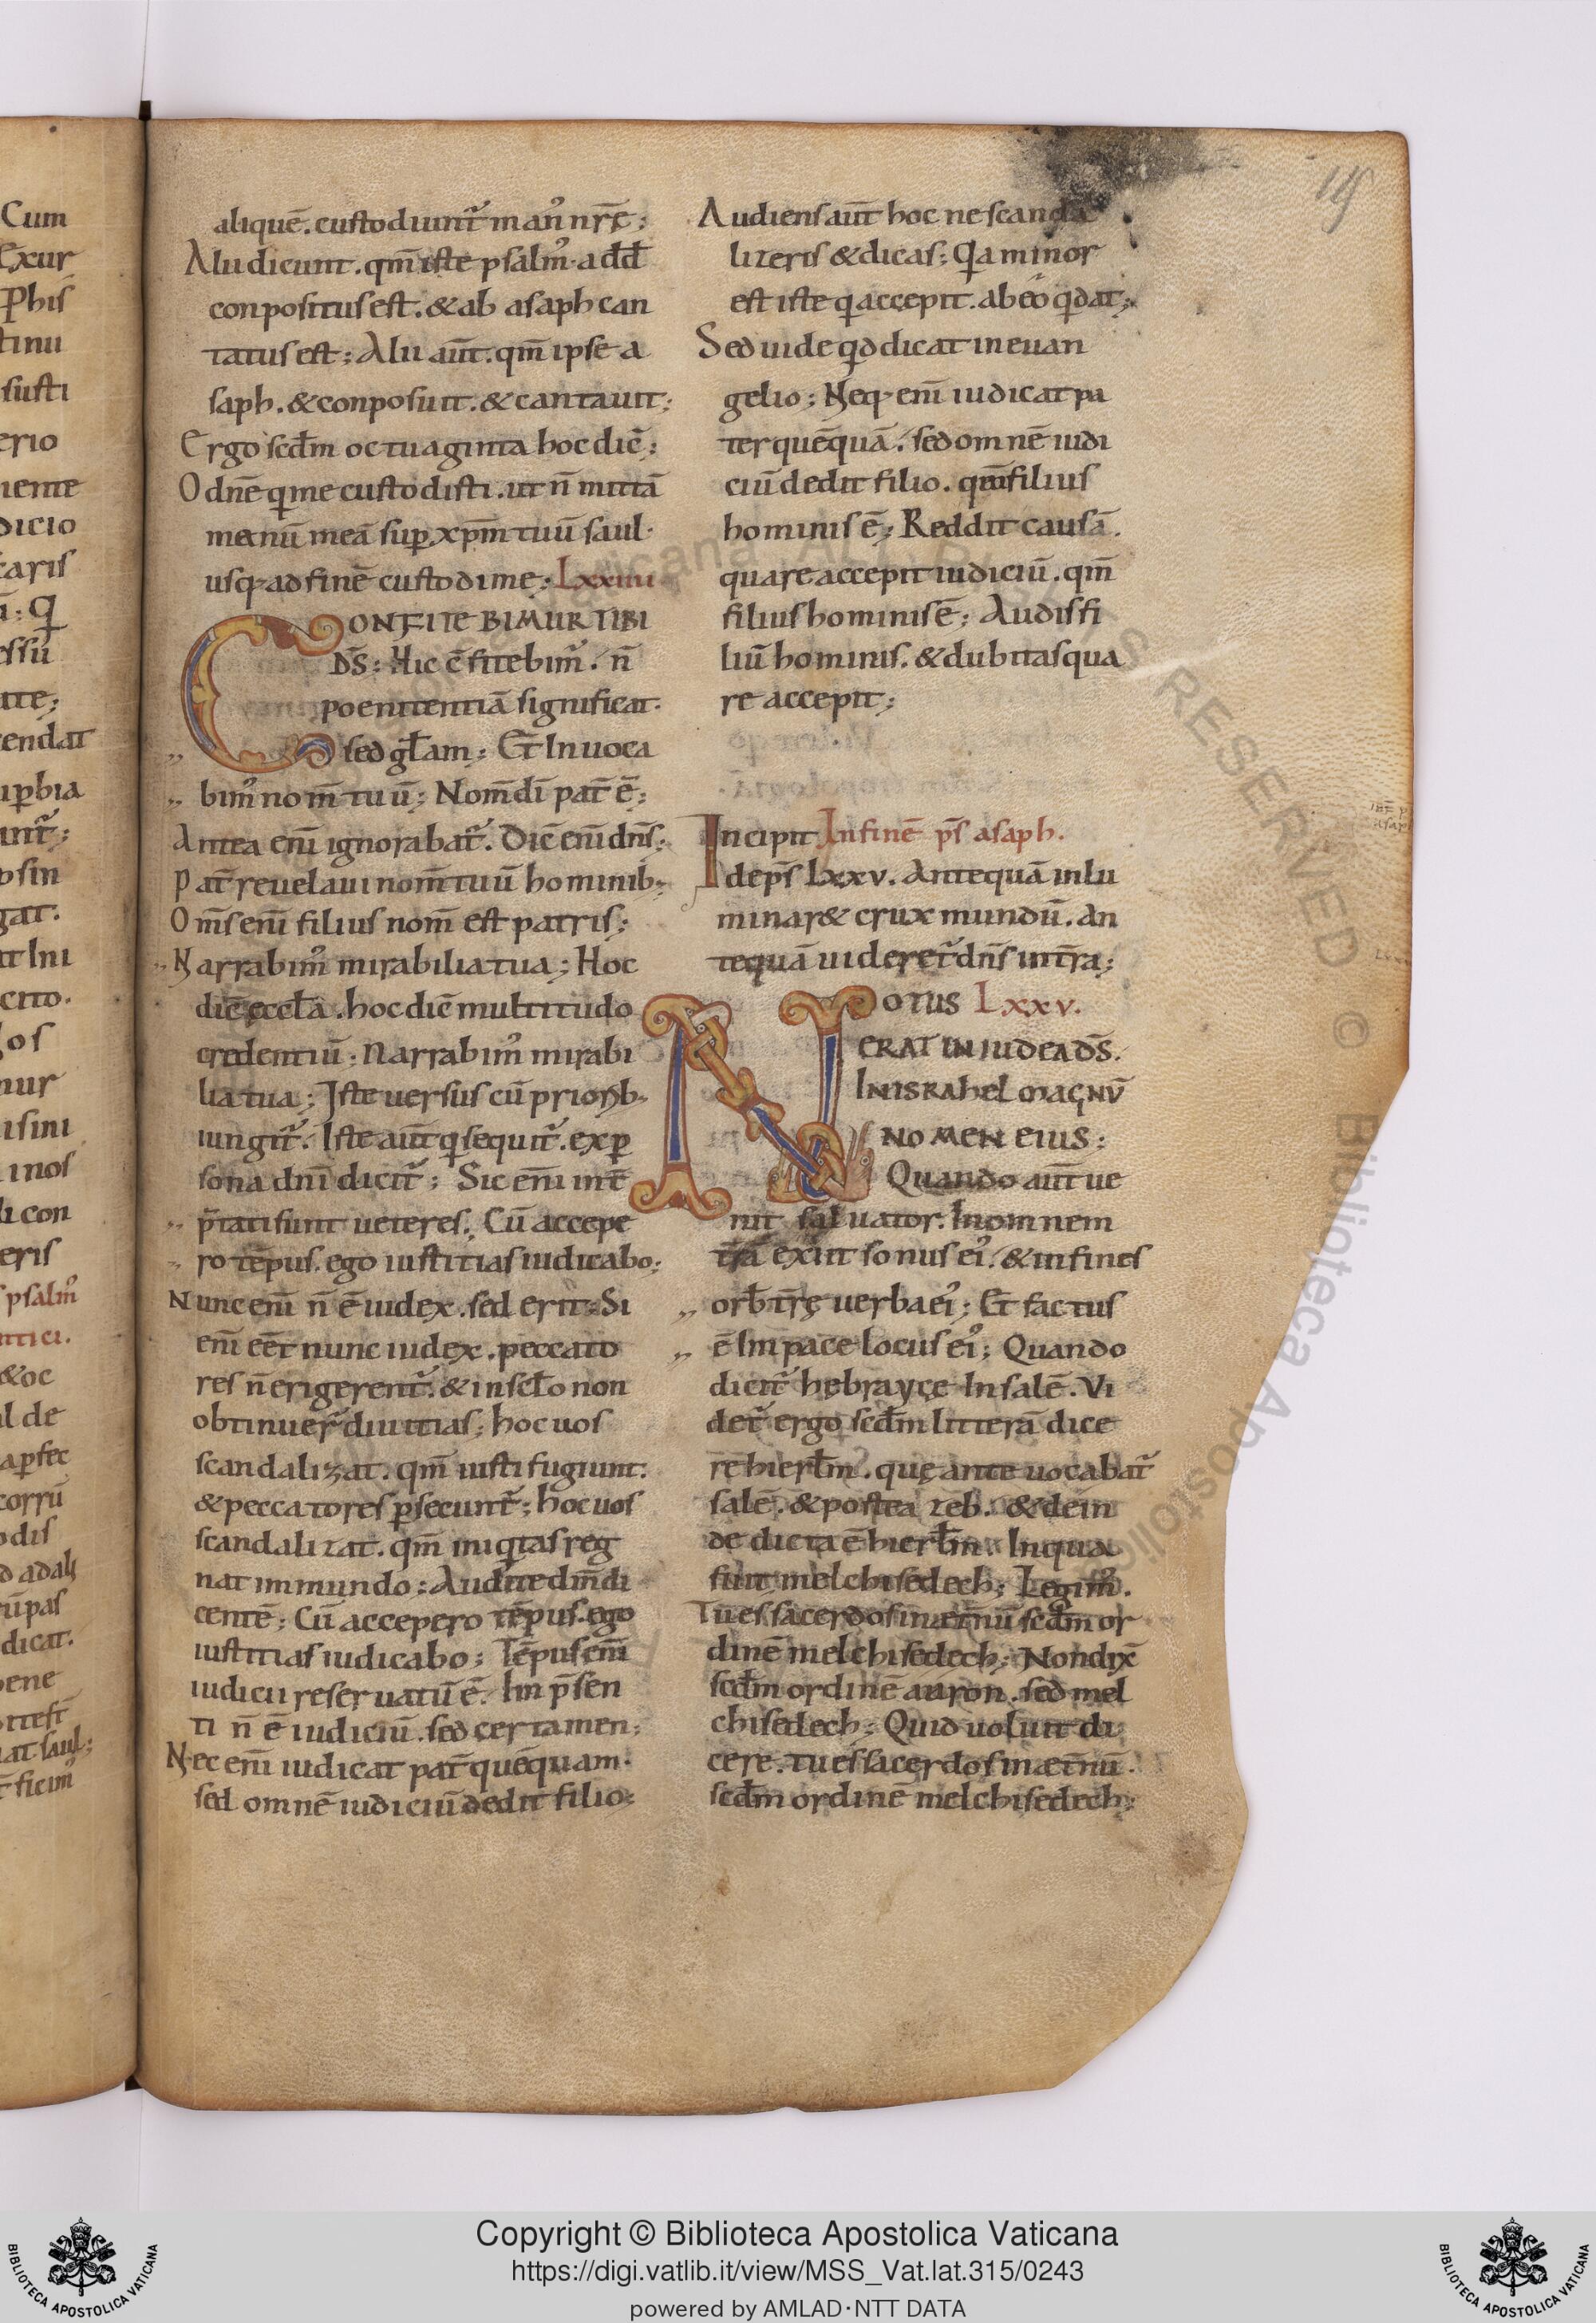 115
aliquē. custodiunt᷑ man᷒ nr̄ę;
Alii dicunt. qm̄ iste psalm᷒. a dd̄
conpositus est. & ab asaph can
tatus est; Alii aut̄. qm̄ ipse a
saph. & conposuit. & cantauit;
Ergo scd̄m octuaginta hoc dic̄;
O dn̄e qi me custodisti. ut n̄ mittā
manū meā sup xp̄m tuū saul.
usq; ad finē custodi me; Lxxiiii
CONFITEBIMUR TIBI
DS̄; Hic c̄fitebim᷒. n̄
poenitentiā significat.
sed gl̄am; Et Inuoca
bim᷒ nom̄ tuū; Nom̄ dī pat̄ ē;
Antea eni̅ ignorabat᷑. Dic̄ eni̅ dn̄s;
Pat̄ reuelaui nom̄ tuū hominib;
Om̄s eni̅ filius nom̄ est patris;
Narrabim᷒ mirabilia tua; Hoc
dic̄ ęccl̄a. hoc dic̄ multitudo
credentiū; Narrabim᷒ mirabi
lia tua; Iste uersus cū priorib;
iungit᷑. Iste aut̄ qi sequit᷑. ex p
sona dn̄i dicit᷑; Sic eni̅ int̄
p̄tati sunt ueteres. Cū accepe
ro tēpus. ego iustitias iudicabo;
Nunc eni̅ n̄ ē iudex. sed erit; Si
eni̅ eēt nunc iudex. peccato
res n̄ erigerent᷑. & in scl̄o non
obtinuer᷑ diuitias; hoc uos
scandalizat. qm̄ iusti fugiunt.
& peccatores psecunt᷑; hoc uos
scandalizat. qm̄ iniqitas reg
nat in mundo; Audite dn̄m di
centē; Cū accepero tēpus. ego
iustitias iudicabo; Tēpus eni̅
iudicii reseruatū ē. Im p̄sen
ti n̄ ē iudiciū. sed certamen;
Nec eni̅ iudicat pat̄ quēquam.
sed omnē iudiciū dedit filio;
Audiens aut̄ hoc ne scanda
lizeris & dicas; Qia minor
est iste qi accepit. ab eo qi dat;
Sed uide qid dicat in euan
gelio; Neq; eni̅ iudicat pa
ter quēquā. sed omnē iudi
ciū dedit filio. qm̄ filius
hominis ē; Reddit causā.
quare accepit iudiciū. qm̄
filius hominis ē; Audis fi
liū hominis. & dubitas qua
re accepit;
Incipit In finē ps̄ asaph.
Ide ps̄ Lxxv. Antequā inlu
minar& crux mundū. An
tequā uideret᷑ dn̄s in tr̄a;
NOTUS Lxxv.
ERAT IN IUDEA DS̄.
IN ISRAHEL MAGNŪ
NOMEN EIUS;
Quando aut̄ ue
nit saluator. In omnem
tr̄ā exiit sonus ei᷒. & in fines
orb̄ tr̄ę uerba ei᷒; Et factus
ē Im pace locus ei᷒; Quando
dicit᷑ hębrayçe In salē. Vi
det᷑ ergo scd̄m litterā dice
re hierl̄m. quę ante uocabat᷑
salē. & postea zeb. & dein
de dicta ē hierl̄m. In qua
fuit melchisedech; Legim᷒.
Tu es sacerdos in aet̄nū scd̄m or
dinē melchisedech; Non dix̄
scd̄m ordinē aaron. sed mel
chisedech; Quid uoluit di
cere. tu es sacerdos in aet̄nū.
scd̄m ordinē melchisedech;
Copyright © Biblioteca Apostolica Vaticana
https://digi.vatlib.it/view/MSS_Vat.lat.315/0243
powered by AMLAD·NTT DATA